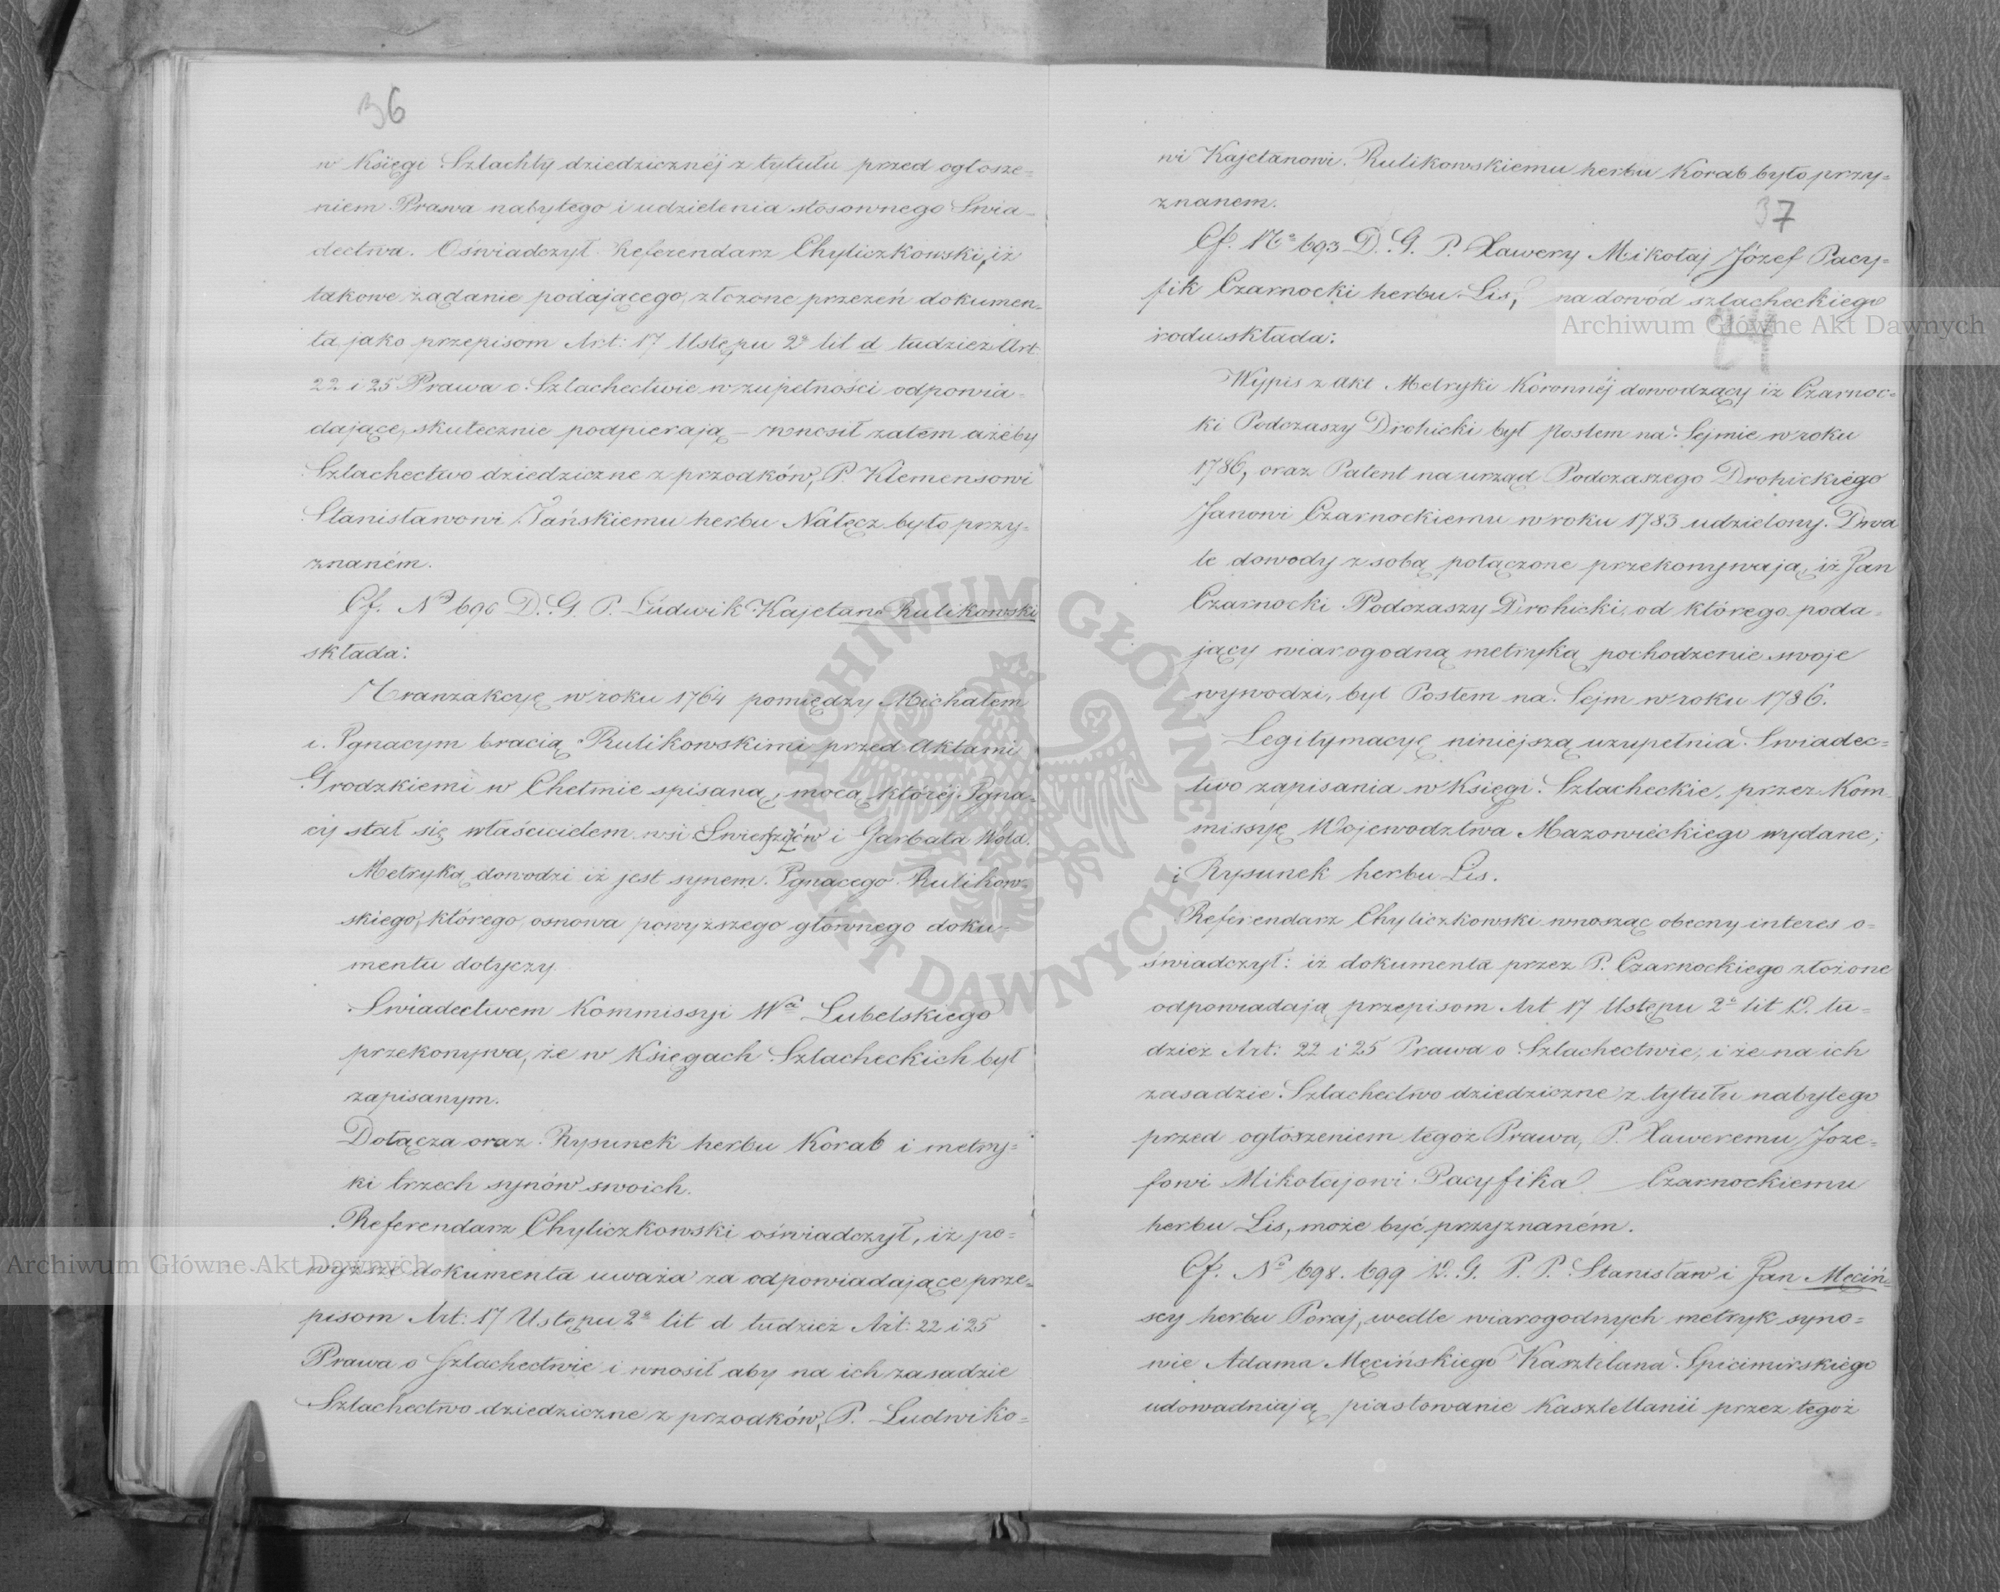 36
w Księgi Szlachty dziedzicznéj z tytułu przed ogłosze=
niem Prawa nabytego i udzielenia stosownego Swia-
dectwa. Oświadczył Referendarz Chyliczkowski, iż
takowe żądanie podającego, złożone przezeń dokumen-
ta jako przepisom Art: 17 Ustępu 2º lit d tudzież Art
22 i 25 Prawa o Szlachectwie w zupełności odpowia-
dające, skutecznie podpierają – wnosił zatem ażeby
Szlachectwo dziedziczne z przodków, P. Klemensowi
Stanisławowi Tańskiemu herbu Nałęcz było przy-
znaném.
Cf. Nº 696 D. G. P. Ludwik Kajetan Rulikowski
składa:
Tranzakcyę w roku 1764 pomiędzy Michałem
i Ignacym bracią Rulikowskimi przed Aktami
Grodzkiemi w Chełmie spisaną, mocą któréj Igna-
cy stał się właścicielem wsi Swierszczów i Garbata Wola.
Metryką dowodzi iż jest synem Ignacego Rulikow-
skiego, którego osnowa powyższego głównego doku-
mentu dotyczy.
Swiadectwem Kommissyi Wa Lubelskiego
przekonywa, że w Księgach Szlacheckich był
zapisanym.
Dołącza oraz Rysunek herbu Korab i metry-
ki trzech synów swoich.
Referendarz Chyliczkowski oświadczył, iż po=
wyższe dokumenta uważa za odpowiadające prze-
pisom Art: 17 Ustępu 2º lit d tudzież Art: 22 i 25
Prawa o Szlachectwie i wnosił aby na ich zasadzie
Szlachectwo dziedziczne z przodków, P. Ludwiko=
wi Kajetanowi Rulikowskiemu herbu Korab było przy=
znanem.
37
Cf. Nº 693 D. G. P. Xawery Mikołaj Józef Pacy=
fik Czarnocki herbu Lis, na dowód szlacheckiego
rodu składa:
Wypis z Akt Metryki Koronnéj dowodzący iż Czarnoc-
ki Podczaszy Drohicki był posłem na Sejmie w roku
1786, oraz Patent na urząd Podczaszego Drohickiego
Janowi Czarnockiemu w roku 1783 udzielony. Dwa
te dowody z sobą połączone przekonywają, iż Jan
Czarnocki Podczaszy Drohicki, od którego poda-
jący wiarogodną metryką pochodzenie swoje
wywodzi, był Posłem na Sejm w roku 1786.
Legitymacyę niniejszą uzupełnia Swiadec=
two zapisania w Księgi Szlacheckie, przez Kom
missyę Województwa Mazowieckiego wydane;
i Rysunek herbu Lis.
Referendarz Chyliczkowski wnosząc obecny interes o-
świadczył: iż dokumenta przez P. Czarnockiego złożone
odpowiadają przepisom Art 17 Ustępu 2º lit D. tu-
dzież Art: 22 i 25 Prawa o Szlachectwie; i że na ich
zasadzie Szlachectwo dziedziczne z tytułu nabytego
przed ogłoszeniem tegoż Prawa, P. Xaweremu Joze=
fowi Mikołajowi Pacyfika Czarnockiemu
herbu Lis, może być przyznaném.
Cf. Nº 698. 699 D. G. P. P. Stanisław i Jan Męciń-
scy herbu Poraj, wedle wiarogodnych metryk syno=
wie Adama Męcińskiego Kasztelana Spicimirskiego
udowadniają piastowanie Kasztellanii przez tegoż
Archiwum Główne Akt Dawnych
Archiwum Główne Akt Dawnych
ARCHIWUM GŁÓWNE AKT DAWNYCH